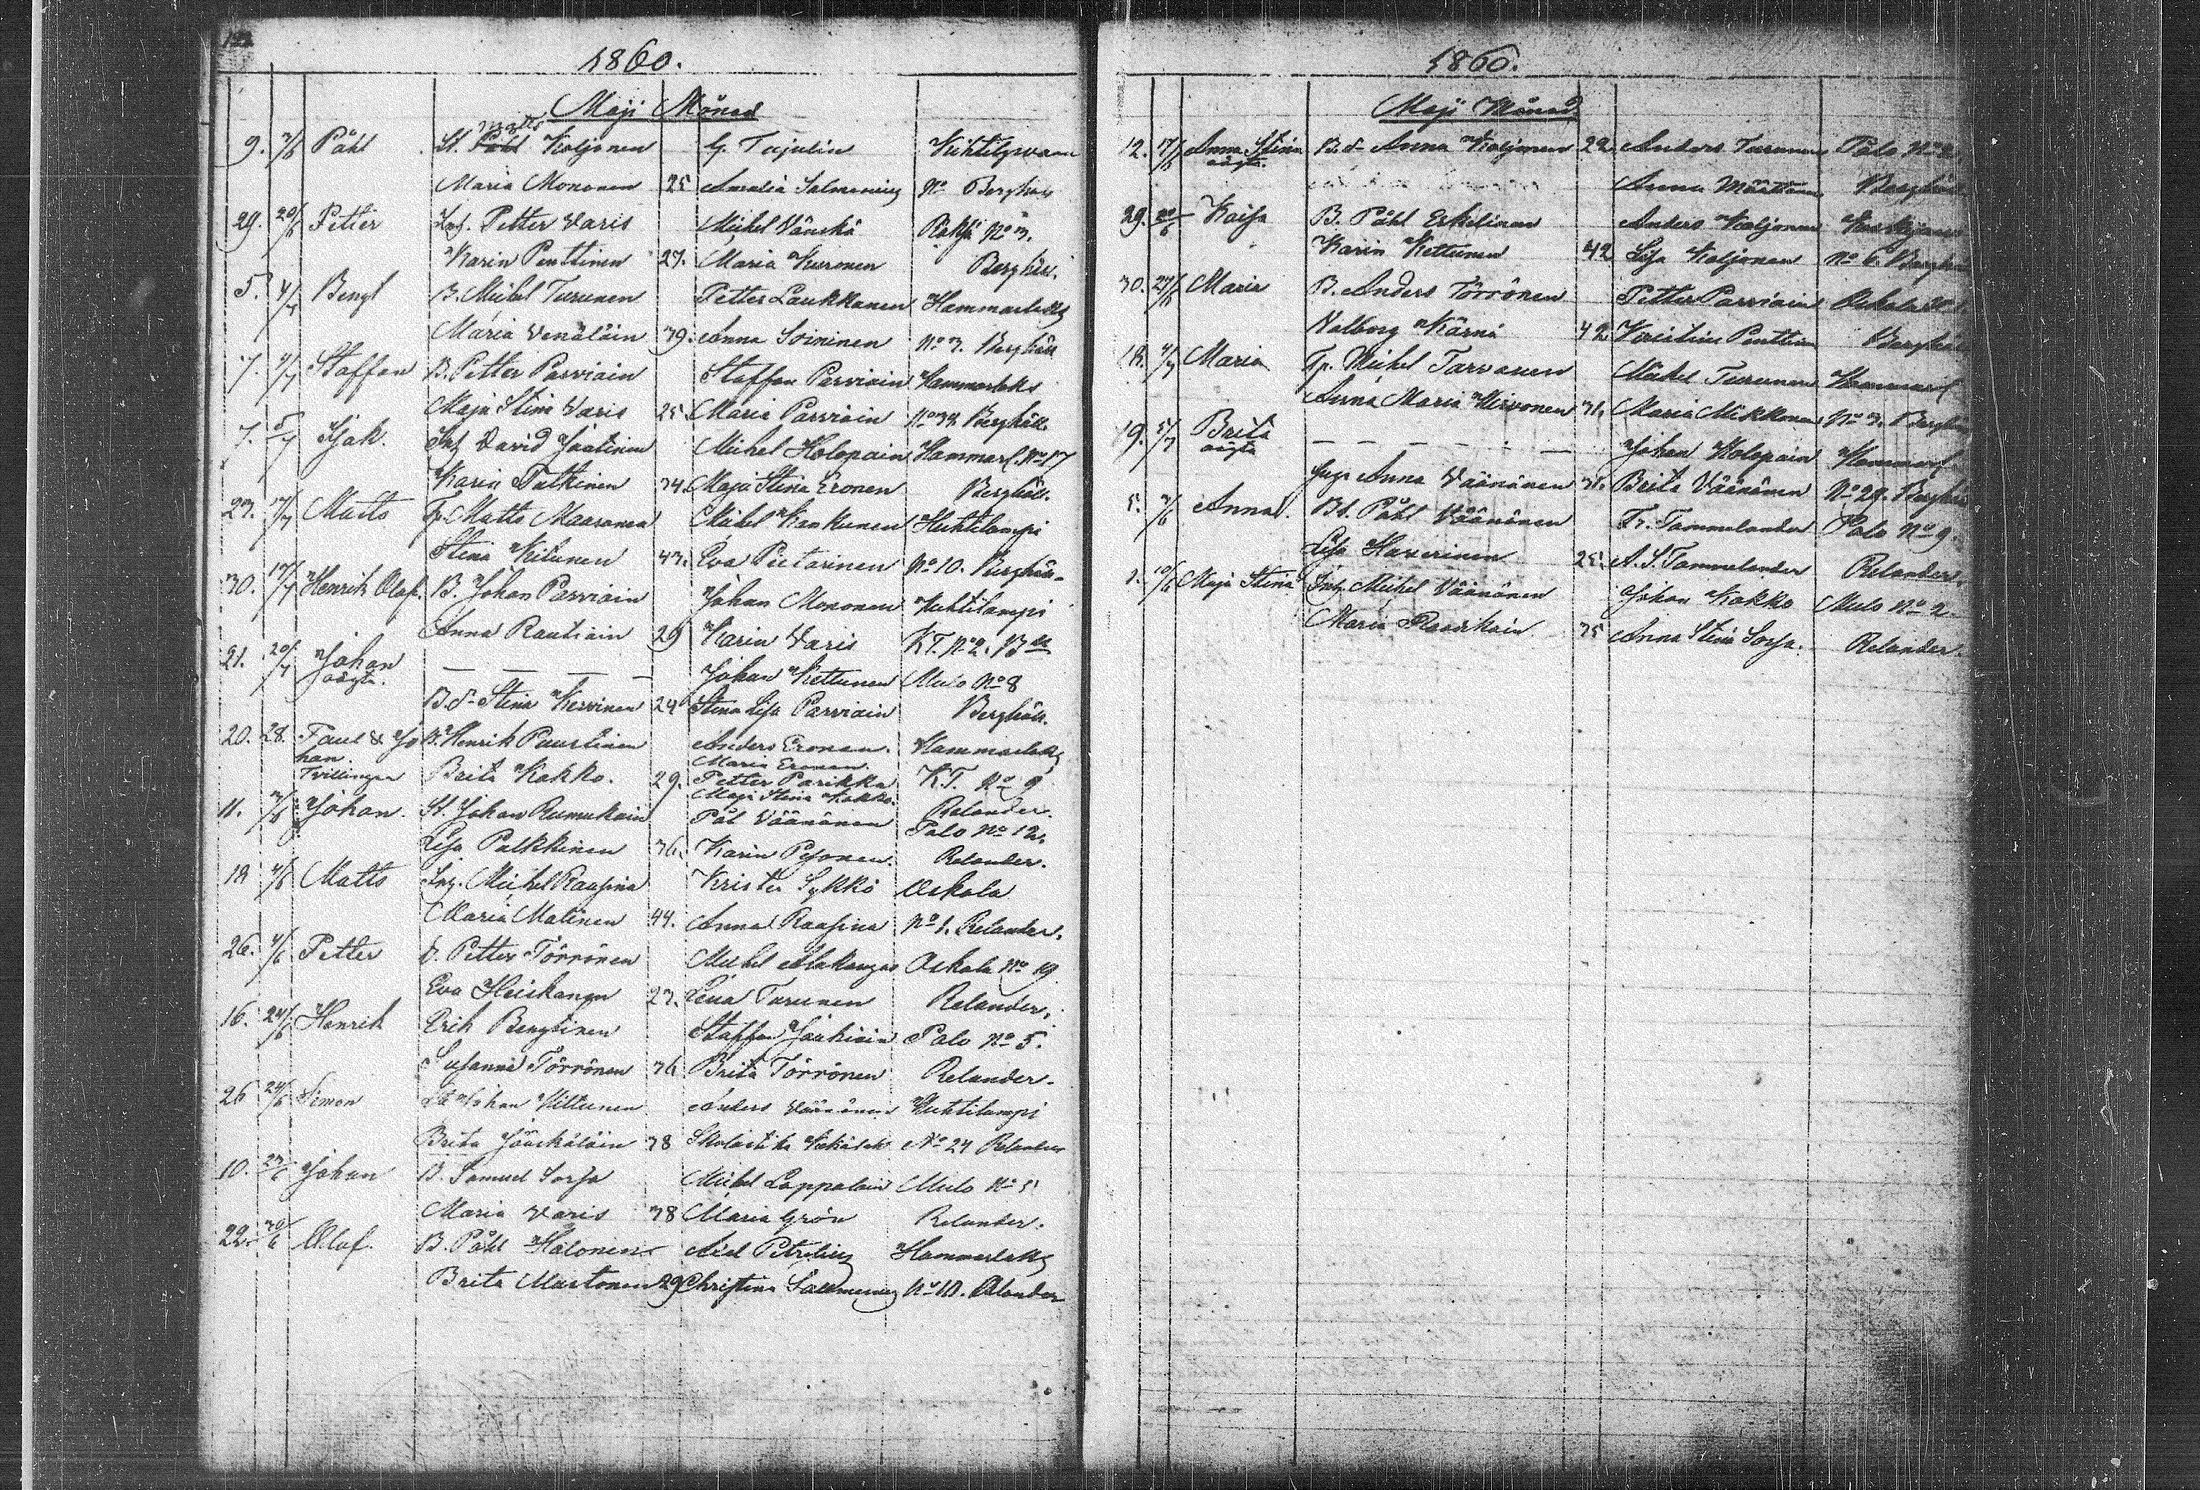 1860.
Maji Månad
Matts
9. 3/6 Påhl St. Påhl Koljonen G. Tujulin Kuhtilovaara
Maria Mononen 25 Amalia Salmenius No Berghäll
29. 20/6 Petter Inh. Petter Varis Michel Vänskä No 3.
Karin Penttinen 27. Maria Kuronen Berghäll.
5. 4/7 Bengt B. Michel Turunen Petter Laukkanen Hammarlaks
Maria Venäläin 39. Anna Soininen No 3. Berghäll
7. 4/7 Staffan B. Petter Parviain Staffan Parviain Hammarlaks
Maja Stina Varis 25. Maria Parviain No 34 Berghäll.
7. 5/7 Isak. Inh David Jaatinen Michel Holopain Hammarl. No 17
Karin Tutkinen 34. Maja Stina Eronen Berghäll.
23. 17/7 Matts Tp. Matts Maaranen Michel Huhtilampi
Stina Kilunen 43. Eva Pietarinen No 10. Berghäll
30. 17/7 Henrik Olof. B. Johan Parviain Johan Mononen Huhtilampi
Anna Rautiain 29 Karin Varis KT. No 2. B
21. 20/7 Johan — — — — Johan Kettunen Mulo No 8
oägta. B.d. Stina Kervinen 24 Stina Lisa Parviain Berghäll.
20. 28. Paul & Jo B. Henrik Puustinen Anders Eronen. Hammarlaks
han. Maria Eronen.
Tvillingar Brita Kakko. 29. Petter Parikka KT. No 9
Maja Stina Kakko. Relander.
11. 3/6 Johan. St. Johan Rumukain Pål Väänänen Palo No 12.
Lisa Pulkkinen 36. Karin Pesonen. Relander.
18 4/6 Matts Inh. Michel Raasina Krister Sykkö Oskola
Maria Matinen 44. Anna Raasina No 1. Relander.
26. 4/6 Petter D. Petter Törrönen Michel Alakangas Oskola No 19
Eva Heiskanen 23. Lena Turunen Relander.
16. 24/6 Henrik Erik Bengtinen Staffan Jaakiain Palo No 5.
Susanna Törrönen 36 Brita Törrönen Relander.
26 24/6 Simon Johan Kiltunen Anders Väänänen Huhtilampi
Brita Jääskeläin 38 Skolastika No 24 Relander
10. 23/6 Johan B. Samuel Sorsa Michel Lappalain Mulo No 5
Maria Varis 38 Maria Grön Relander.
22. 30/6 Olof. B. Påhl Halonen Axel Petrelius Hammarlaks
Brita Mustonen 29 Christina Salmenius No 10. Relander
1860.
Maji Månad
12. 17/6 Anna Stina B.d. Anna Koljonen 22. Anders Turunen Palo No 2
oägta. Anna Määttänen Berghäll
29. 20/6 Kaisa B. Påhl Eskelinen Anders Koljonen
Karin Kettunen 42 Lisa Koljonen No 6. Berghäll
30. 24/6 Maria B. Anders Törrönen Petter Parviain Oskola
Valborg Kärnä 42. Kristina Penttinen Berghäll
18. 4/7 Maria Tp. Michel Tarvanen Michel Turunen Hammarl.
Anna Maria Hirvonen 31. Maria Mikkonen No 3. Berghäll
19. 5/7 Brita — — — — — Johan Holopain Hammarl
oägta Anna Väänänen 31. Brita Väänänen No 29. Berghäll
5. 3/6 Anna. Bd. Påhl Väänänen Fr. Tammelander Palo No 9.
Lisa Haverinen 25. A. S. Tammelander Relander.
1. 10/6 Maja Stina Inh. Michel Väänänen Johan Kakko Mulo No 2.
Maria Raavikain 35 Anna Stina Sorsa. Relander.